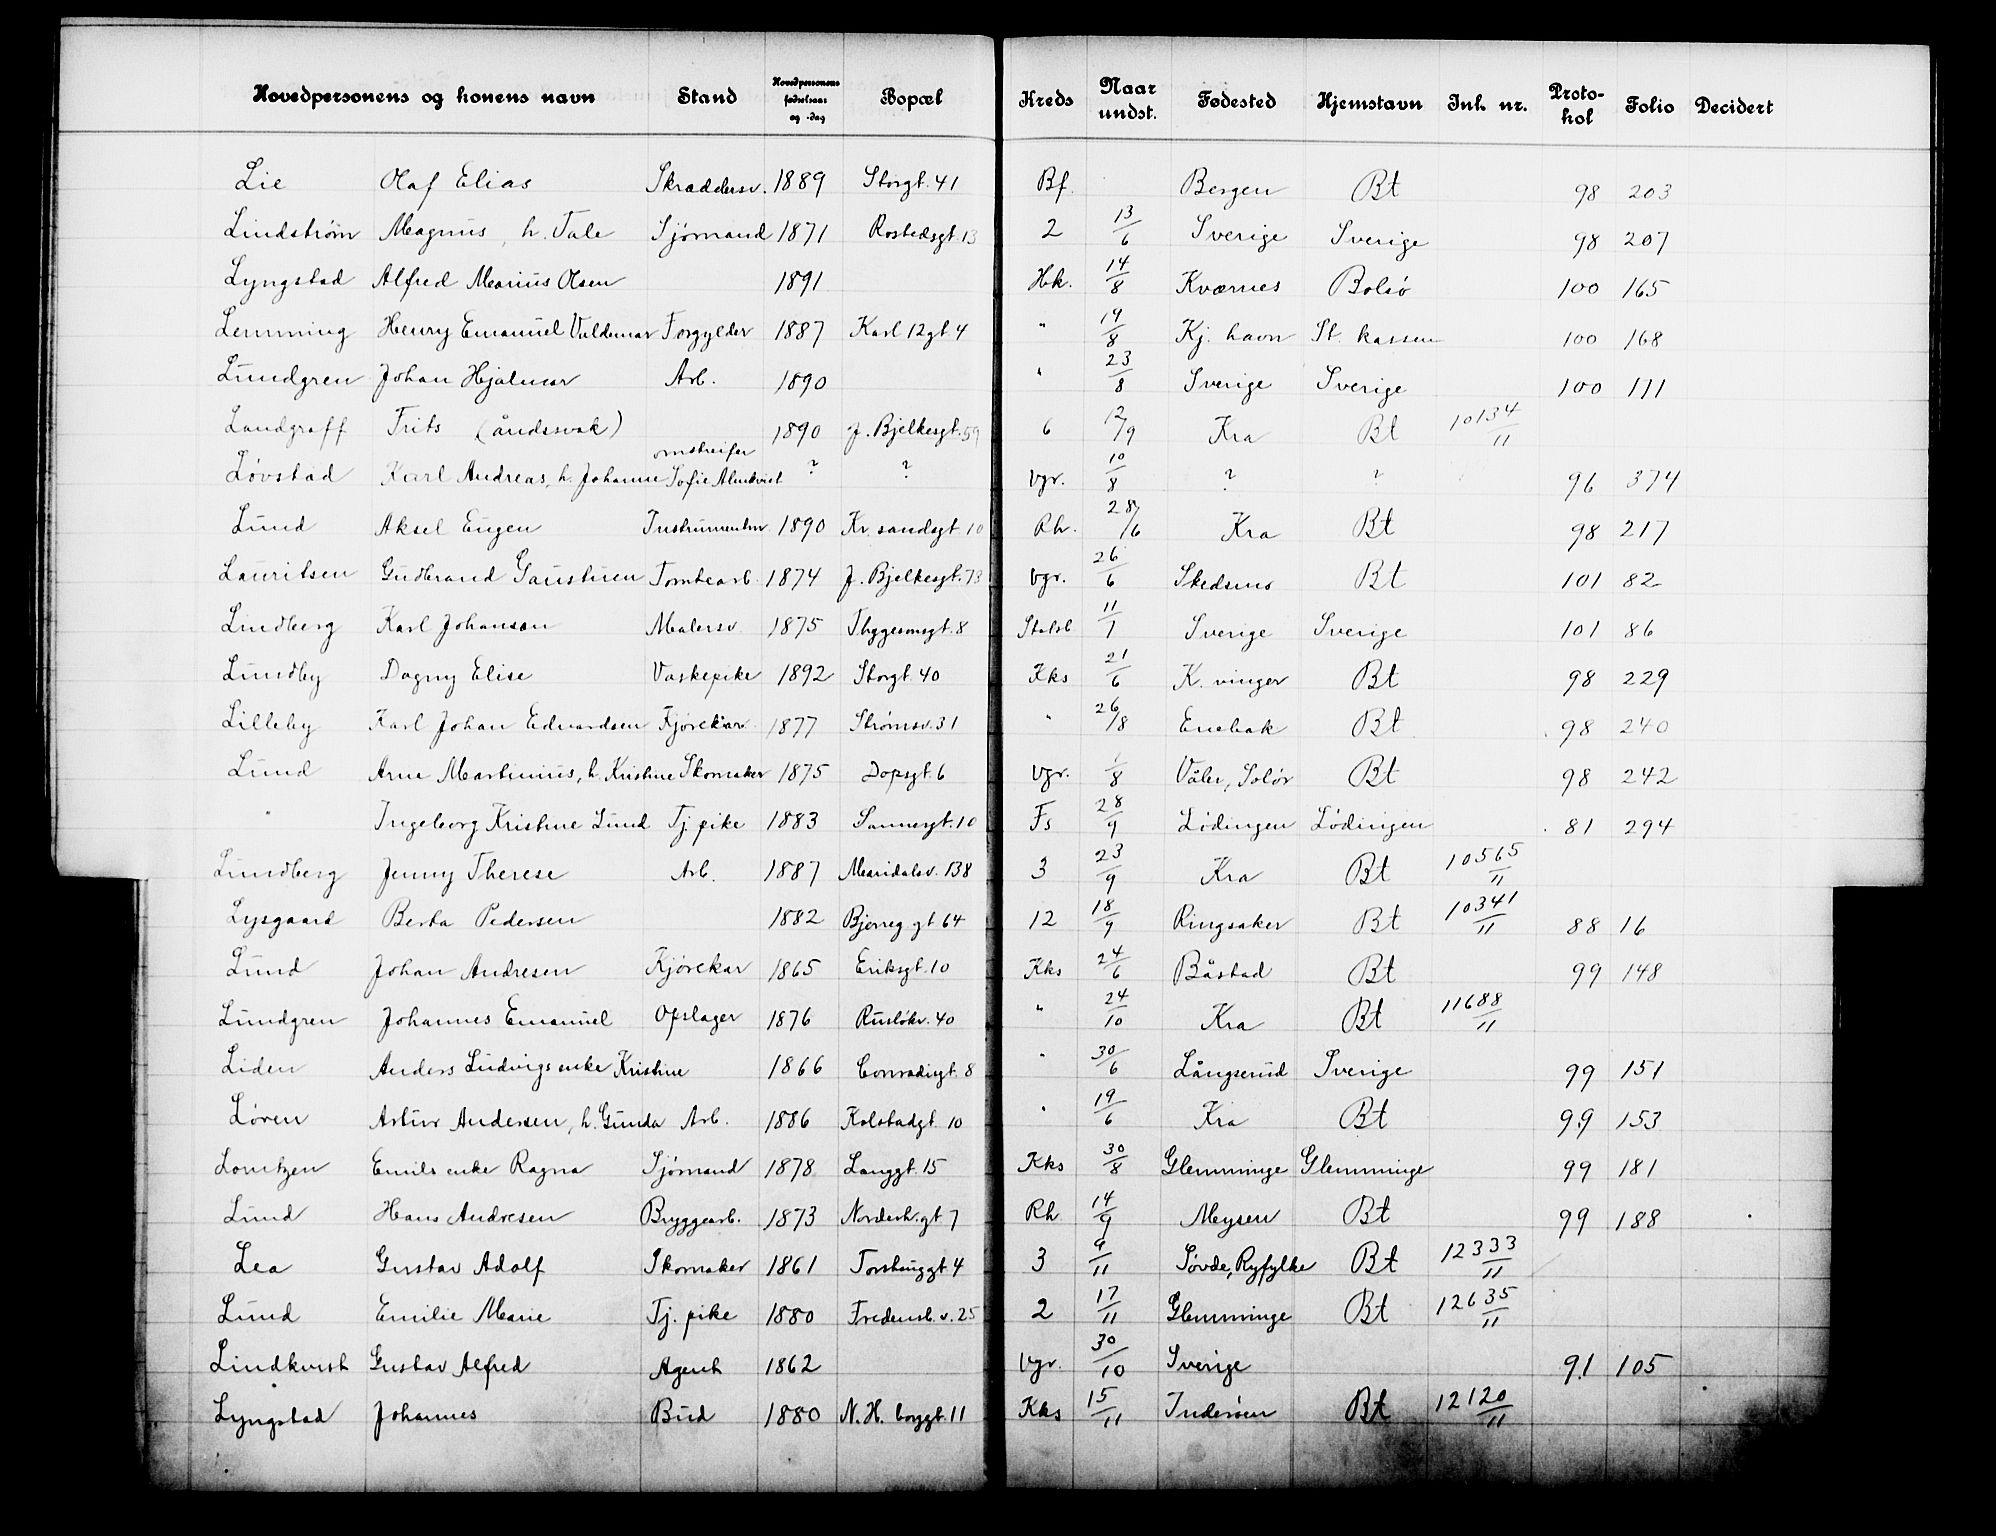 Hovedpersonens og konens navn Stand Hovedpersonens fødselsaar og -dag Bopæl Kreds Naar undst. Fødested Hjemstavn Inh. nr. Protokol Folio Decidert
Lie Olaf Elias Skræddersv. 1889 Storgt. 41 Bf. Bergen Bt 98 203
Lindstrøm Magnus, h. Tale Sjømand 1871 Rostedsgt. 13 2 13/6 Sverige Sverige 98 207
Lyngstad Alfred Marius Olsen 1891 Hk. 14/8 Kværnes Bolsø 100 165
Lemming Henry Emanuel Valdemar Forgylder 1887 Karl 12gt 4 " 19/8 Kj. havn St. kassen 100 168
Lundgren Johan Hjalmar Arb. 1890 " 23/8 Sverige Sverige 100 171
Landgraff Frits (åndssvak) 1890 J. Bjelkesgt. 59 6 12/9 Kra Bt 10134/11
Løvstad Karl Andreas, h. Johanne Sofie Almkvist omstreifer ? ? Vgr. 10/8 ? ? 96 374
Lund Aksel Eugen Instrumentm. 1890 Kr. sandsgt. 10 Rh. 28/6 Kra Bt 98 217
Lauritsen Gudbrand Gaustuen Tomtearb. 1874 J. Bjelkesgt. 73 Vgr. 26/6 Skedsmo Bt 101 82
Lindberg Karl Johanson Malersv. 1875 Thygesonsgt. 8 11/1 Sverige Sverige 101 86
Lundby Dagny Elise Vaskepike 1892 Storgt. 40 Kks 21/6 K. vinger Bt 98 229
Lilleby Karl Johan Edvardsen Kjørekar 1877 Strømsv. 31 " 26/8 Enebak Bt 98 240
Lund Arne Martinius, h. Kristine Skomaker 1875 Dopsgt. 6 Vgr. 1/8 Våler, Solør Bt 98 242
" Ingeborg Kristine Lund Tj. pike 1883 Sannergt. 10 Fs 28/9 Lødingen Lødingen 81 294
Lundberg Jenny Therese Arb. 1887 Maridalsv. 138 3 23/9 Kra Bt 10565/11
Lysgaard Berta Pedersen 1882 Bjerreg. gt 64 12 18/9 Ringsaker Bt 10341/11 88 16
Lund Johan Andresen Kjørekar 1865 Eriksgt. 10 Kks 24/6 Båstad Bt 99 148
Lundgren Johannes Emanuel Opslager 1876 Rusløkv. 40 " 24/10 Kra Bt 11688/11
Liden Anders Ludvigs enke Kristine 1866 Conradigt. 8 " 30/6 Långserud Sverige 99 151
Løren Artur Andersen, h. Gunda Arb. 1886 Kolstadgt. 10 " 19/6 Kra Bt 99 153
Lorntzen Emils enke Ragna Sjømand 1878 Langgt. 15 Kks 30/8 Glemminge Glemminge 99 181
Lund Hans Andresen Bryggearb. 1873 Norderh. gt 7 Rh 14/9 Mysen Bt 99 188
Lea Gustav Adolf Skomaker 1861 Torshuggt 4 3 9/11 Søvde, Ryfylke Bt 12333/11
Lund Emilie Marie Tj. pike 1880 Fredensb. v. 25 2 17/11 Glemminge Bt 12635/11
Lindkvist Gustav Alfred Agent 1862 Vgr. 30/10 Sverige 91 105
Lyngstad Johannes Bud 1880 N. H. bryggt. 11 Kks 15/11 Inderøen Bt 12120/11